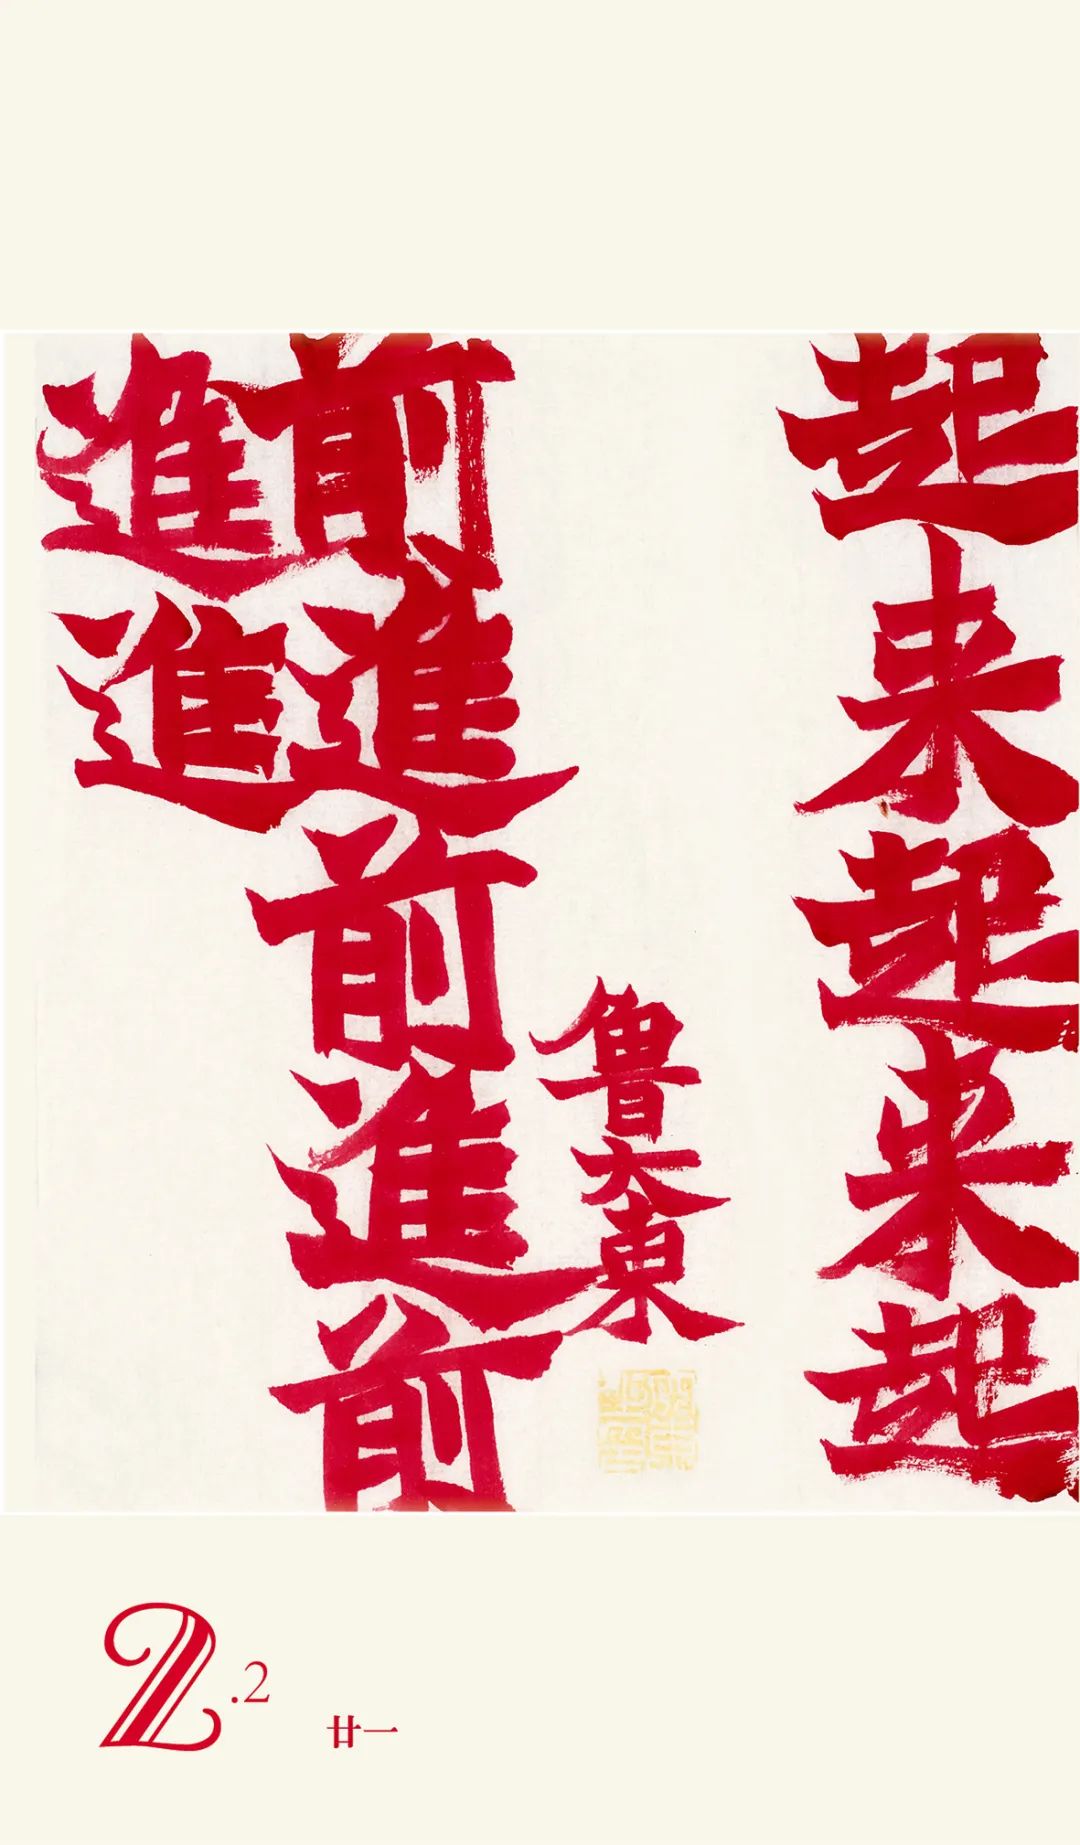 起来起来起
鲁大東
前進前進前
進進
2.2
廿一